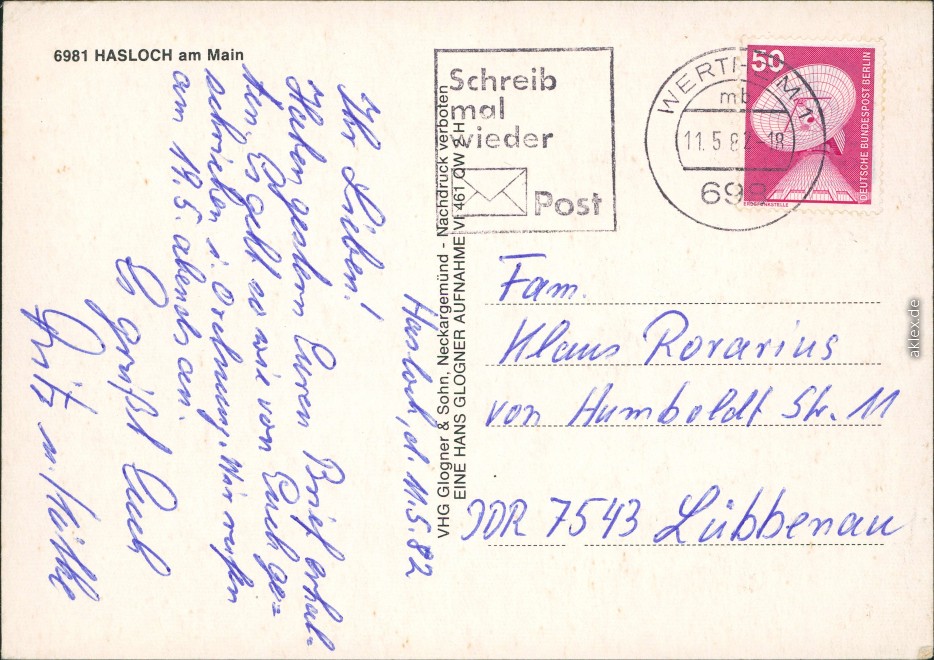 6981 HASLOCH am Main
Hasloch, d. 11.5.82
Ihr Lieben!
Haben gestern Euren Brief erhal-
ten. Es geht so wie von Euch ge=
schrieben i. Ordnung. Wir rufen
am 19.5. abends an.
Es grüßt Euch
Fritz u.
VHG Glogner & Sohn, Neckargemünd - Nachdruck verboten
EINE HANS GLOGNER AUFNAHME VI 461 QW 2 H
Schreib
mal
wieder
Post
WERTHEIM 1
mb
11.5.82-18
698
50
DEUTSCHE BUNDESPOST BERLIN
ERDEFUNKSTELLE
Fam.
Klaus Rorarius
von Humboldt Str. 11
DDR 7543 Lübbenau
aklex.de